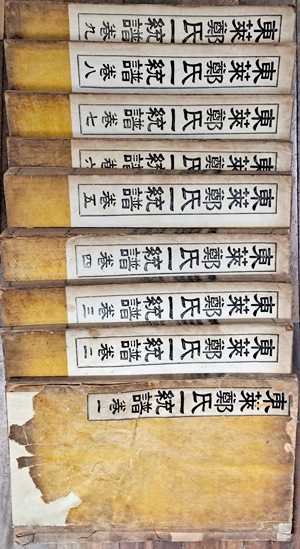 東萊鄭氏一統譜 卷九
東萊鄭氏一統譜 卷八
東萊鄭氏一統譜 卷七
東萊鄭氏一統譜 卷六
東萊鄭氏一統譜 卷五
東萊鄭氏一統譜 卷四
東萊鄭氏一統譜 卷三
東萊鄭氏一統譜 卷二
東萊鄭氏一統譜 卷一